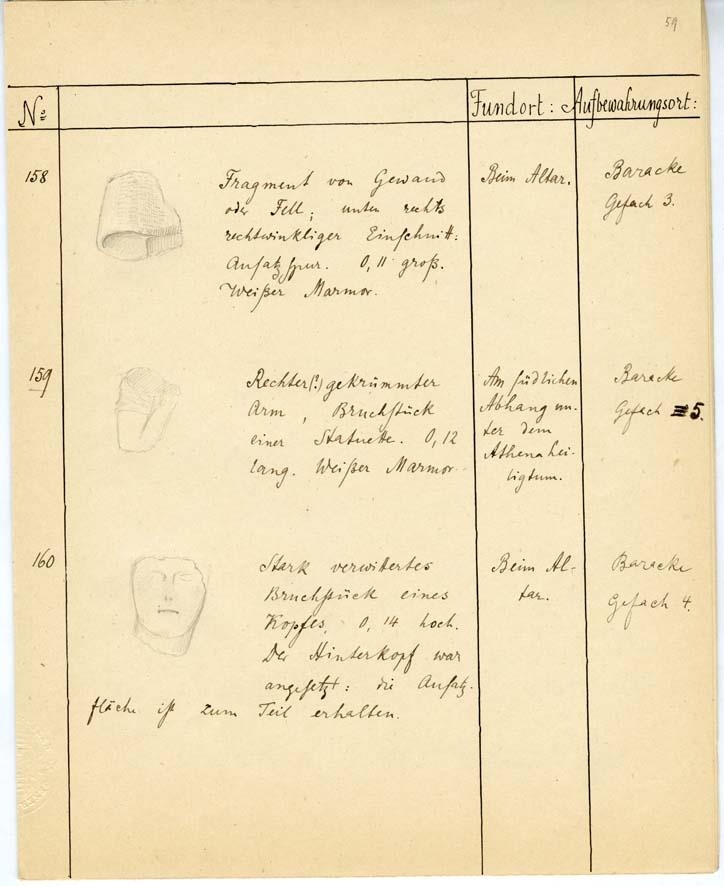 59
No Fundort: Aufbewahrungsort:
158
Fragment von Gewand
oder Fell; unten rechts
rechtwinkliger Einschnitt:
Ansatzspur. 0,11 groß.
Weißer Marmor.
Beim Altar.
Baracke
Gefach 3.
159
Rechter(?) gekrümmter
Arm, Bruchstück
einer Statuette. 0,12
lang. Weißer Marmor.
Am südlichen
Abhang un-
ter dem
Athenahei-
ligtum.
Baracke
Gefach 5.
160
Stark verwittertes
Bruchstück eines
Kopfes, 0,14 hoch.
Der Hinterkopf war
angesetzt: die Ansatz-
fläche ist zum Teil erhalten.
Beim Al-
tar.
Baracke
Gefach 4.